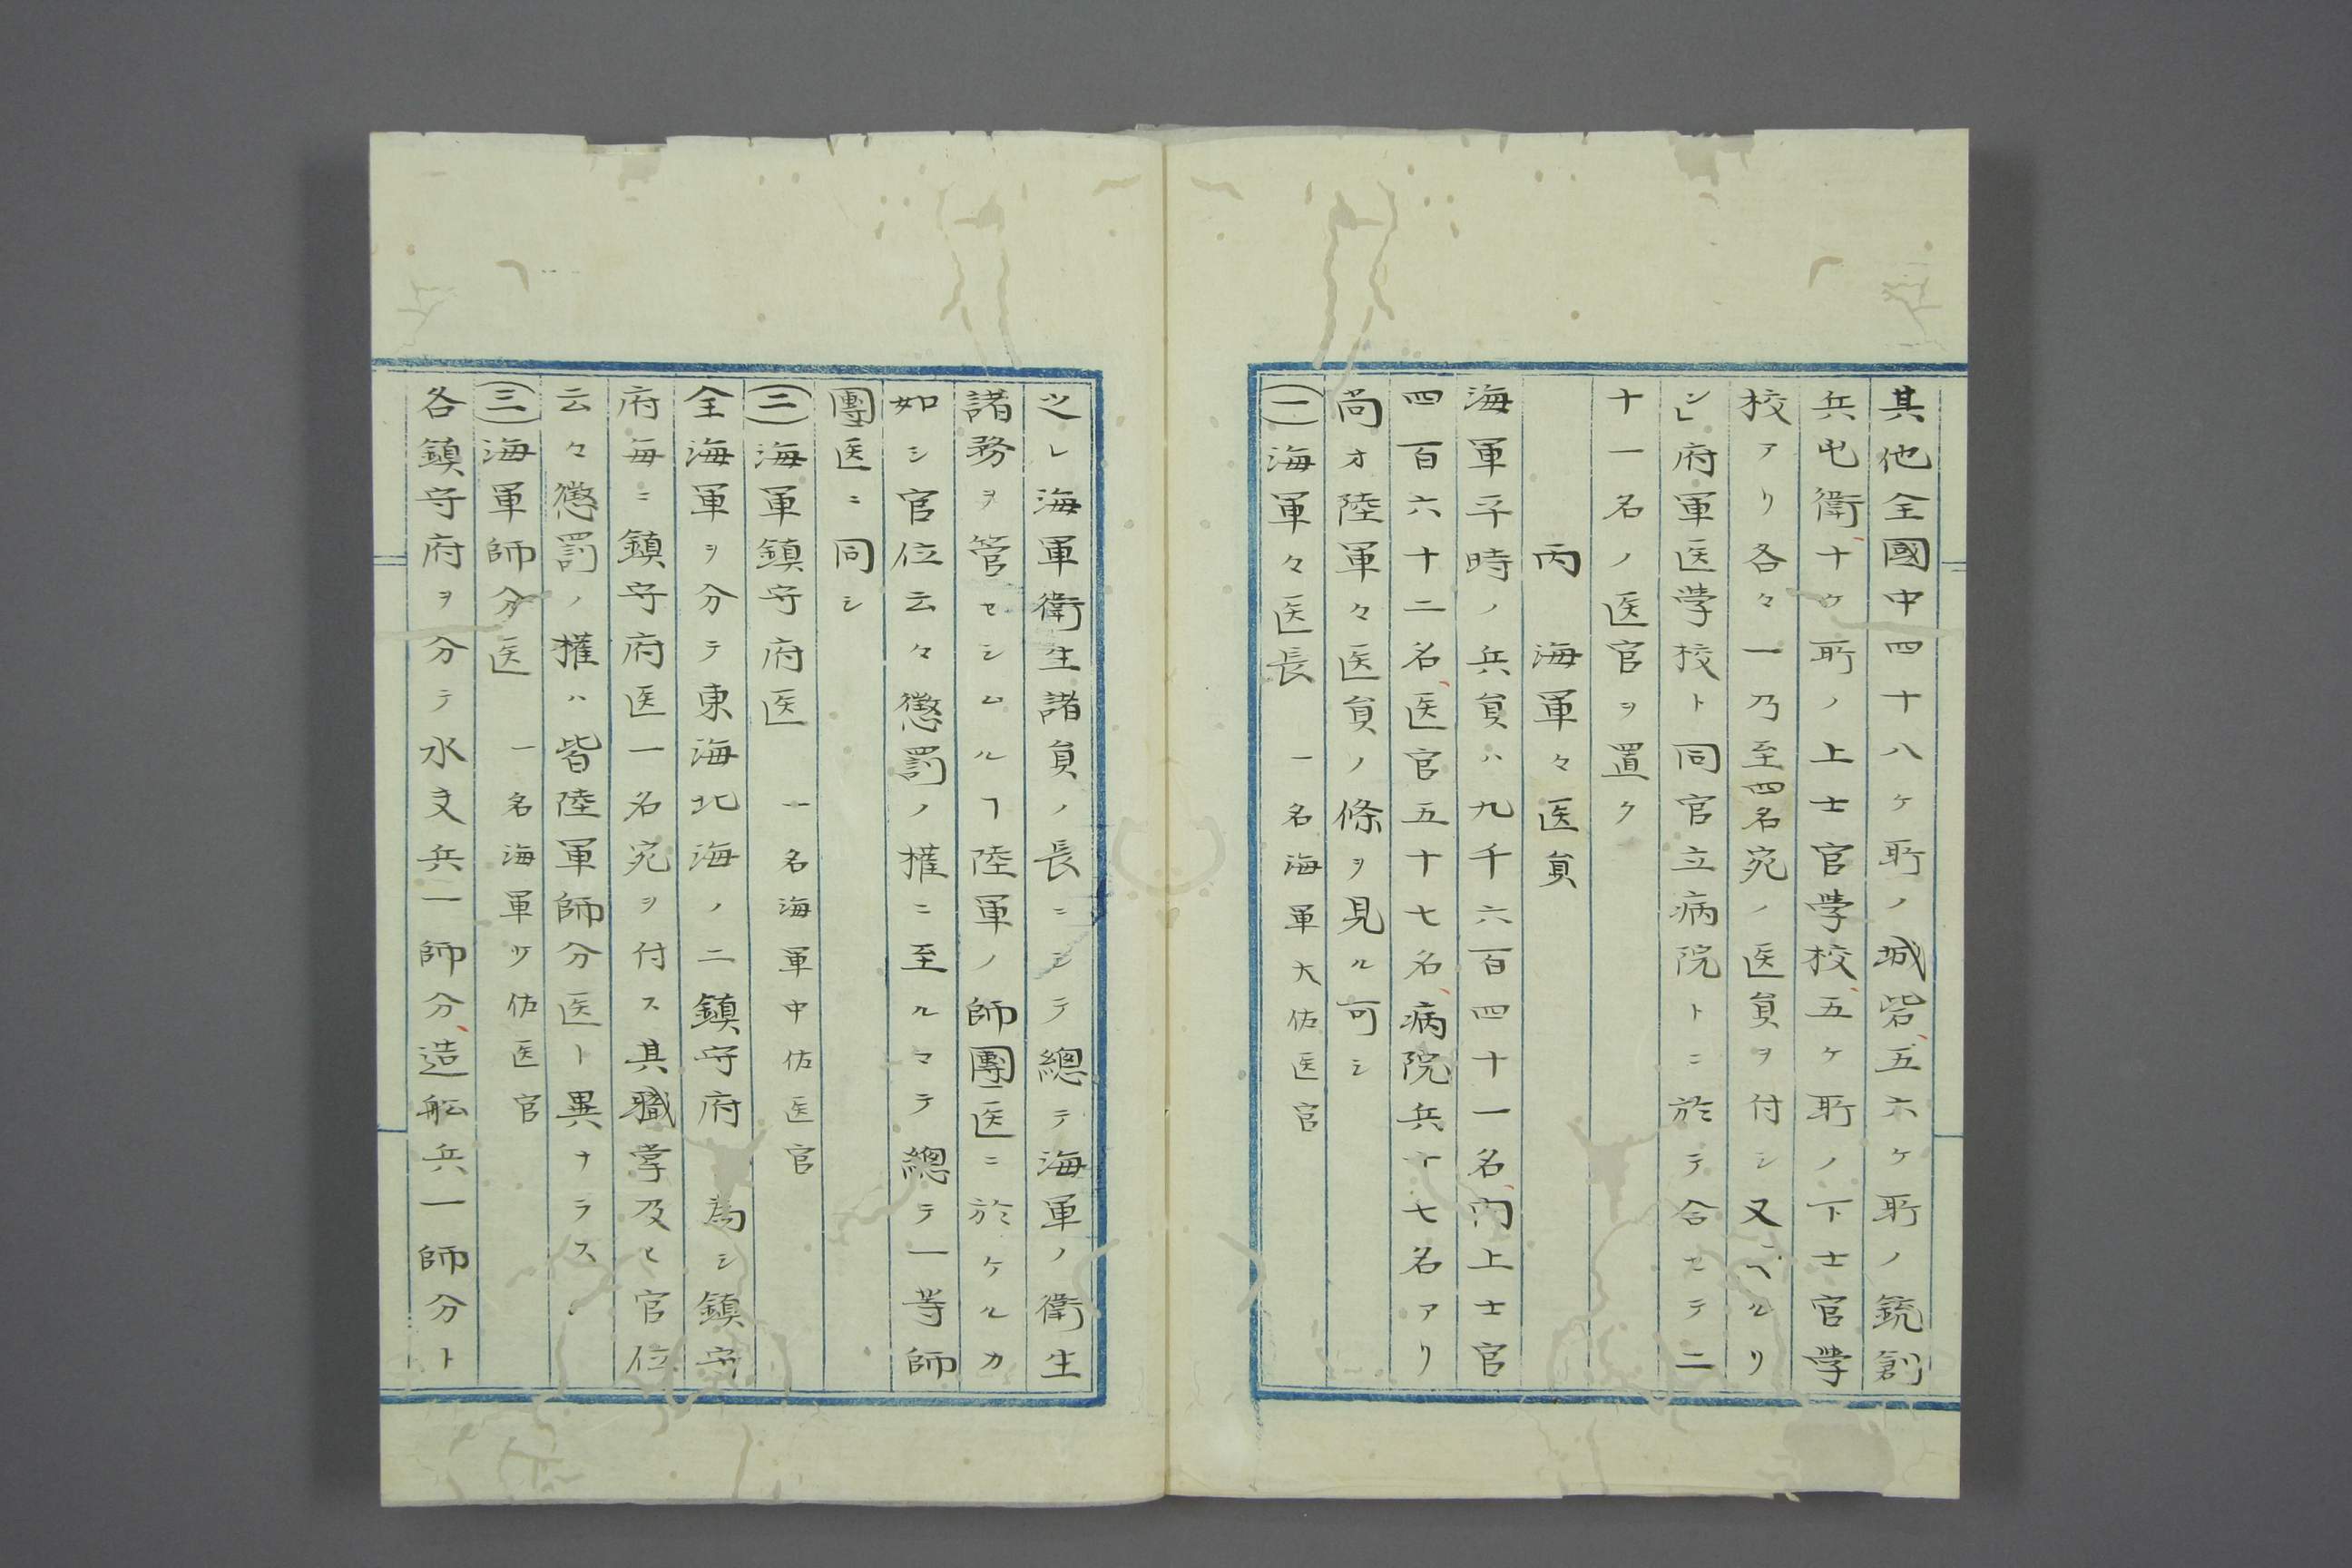 其他全國中四十八ケ所ノ城砦、五六ケ所ノ銃創
兵屯衛、十ケ所ノ上士官学校、五ケ所ノ下士官学
校アリ各々一乃至四名宛ノ医員ヲ付シ又ベルリ
ン府軍医学校ト同官立病院トニ於テ合セテ二
十一名ノ医官ヲ置ク
丙　海軍々医員
海軍平時ノ兵員ハ九千六百四十一名、内上士官
四百六十二名、医官五十七名、病院兵十七名アリ
尚オ陸軍々医員ノ條ヲ見ル可シ
(一)海軍々医長　一名海軍大佐医官
之レ海軍衛生諸員ノ長ニシテ總テ海軍ノ衛生
諸務ヲ管セシムルヿ陸軍ノ師團医ニ於ケルカ
如シ官位云々懲罰ノ権ニ至ルマテ總テ一等師
團医ニ同シ
(二)海軍鎮守府医　一名海軍中佐医官
全海軍ヲ分テ東海北海ノ二鎮守府　為シ鎮守
府毎ニ鎮守府医一名宛ヲ付ス其職掌及ヒ官位
云々懲罰ノ権ハ皆陸軍師分医ト異ナラス
(三)海軍師分医　一名海軍少佐医官
各鎮守府ヲ分テ水夫兵一師分、造船兵一師分ト